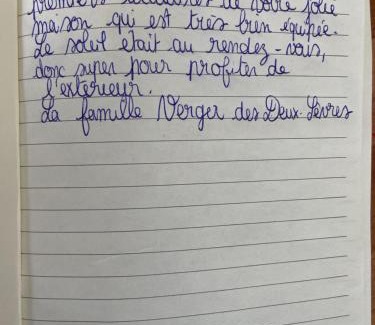 premiers locataires de votre jolie
maison qui est très bien équipée.
Le soleil était au rendez-vous,
donc super pour profiter de
l'extérieur.
La famille Verger des Deux-Sèvres